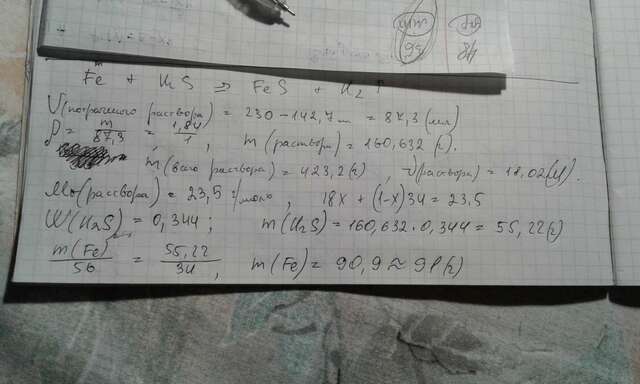 Fe + H₂S ⇒ FeS + H₂ ↑
V(потраченого раствора) = 230 - 142,7 = 87,3 (мл)
ρ = m/87,3 = 1,84/1 , m(раствора) = 160,632 (г).
m(всего раствора) = 423,2 (г) , ν(раствора) = 18,02 (м).
M(раствора) = 23,5 г/моль , 18x + (1-x)34 = 23,5
W(H₂S) = 0,344 ; m(H₂S) = 160,632 · 0,344 = 55,22 (г)
m(Fe)/56 = 55,22/34 , m(Fe) = 90,9 ≈ 91 (г)